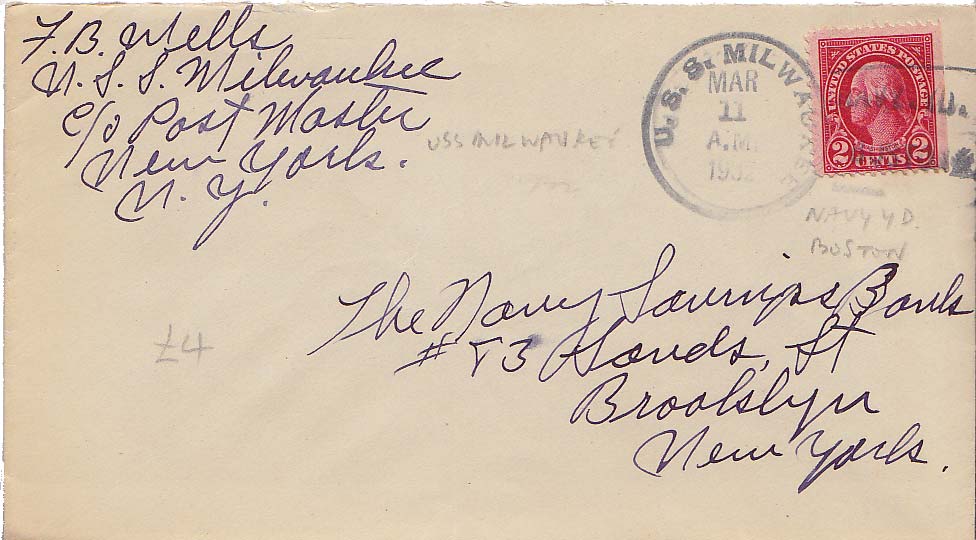 F. B. Wells
U. S. S. Milwaukee
c/o Post Master
New York.
N. Y.
USS MILWAUKEE
U. S. S. MILWAUKEE
MAR
11
A.M.
1932
UNITED STATES POSTAGE
WASHINGTON
2 CENTS 2
NAVY YD.
BOSTON
The Navy Savings Bank
# 83 Sands, St
Brooklyn
New York.
£4